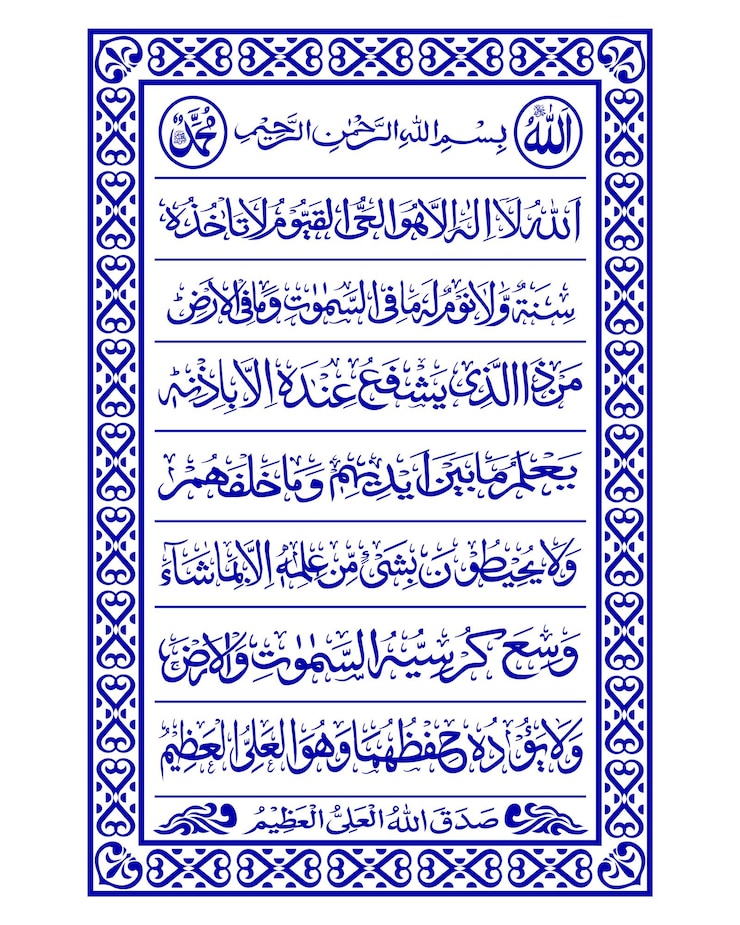 اَللّٰهُ بِسْمِ اللّٰهِ الرَّحْمٰنِ الرَّحِيْمِ مُحَمَّدٌ
اَللّٰهُ لَاۤ اِلٰهَ اِلَّا هُوَ الْحَىُّ الْقَيُّوْمُ لَا تَاْخُذُهٗ
سِنَةٌ وَّلَا نَوْمٌ لَهٗ مَا فِى السَّمٰوٰتِ وَمَا فِى الْاَرْضِ
مَنْ ذَا الَّذِىْ يَشْفَعُ عِنْدَهٗۤ اِلَّا بِاِذْنِهٖ
يَعْلَمُ مَا بَيْنَ اَيْدِيْهِمْ وَمَا خَلْفَهُمْ
وَلَا يُحِيْطُوْنَ بِشَىْءٍ مِّنْ عِلْمِهٖۤ اِلَّا بِمَا شَآءَ
وَسِعَ كُرْسِيُّهُ السَّمٰوٰتِ وَالْاَرْضَ
وَلَا يَؤُدُهٗ حِفْظُهُمَا وَهُوَ الْعَلِىُّ الْعَظِيْمُ
صَدَقَ اللّٰهُ الْعَلِىُّ الْعَظِيْمُ